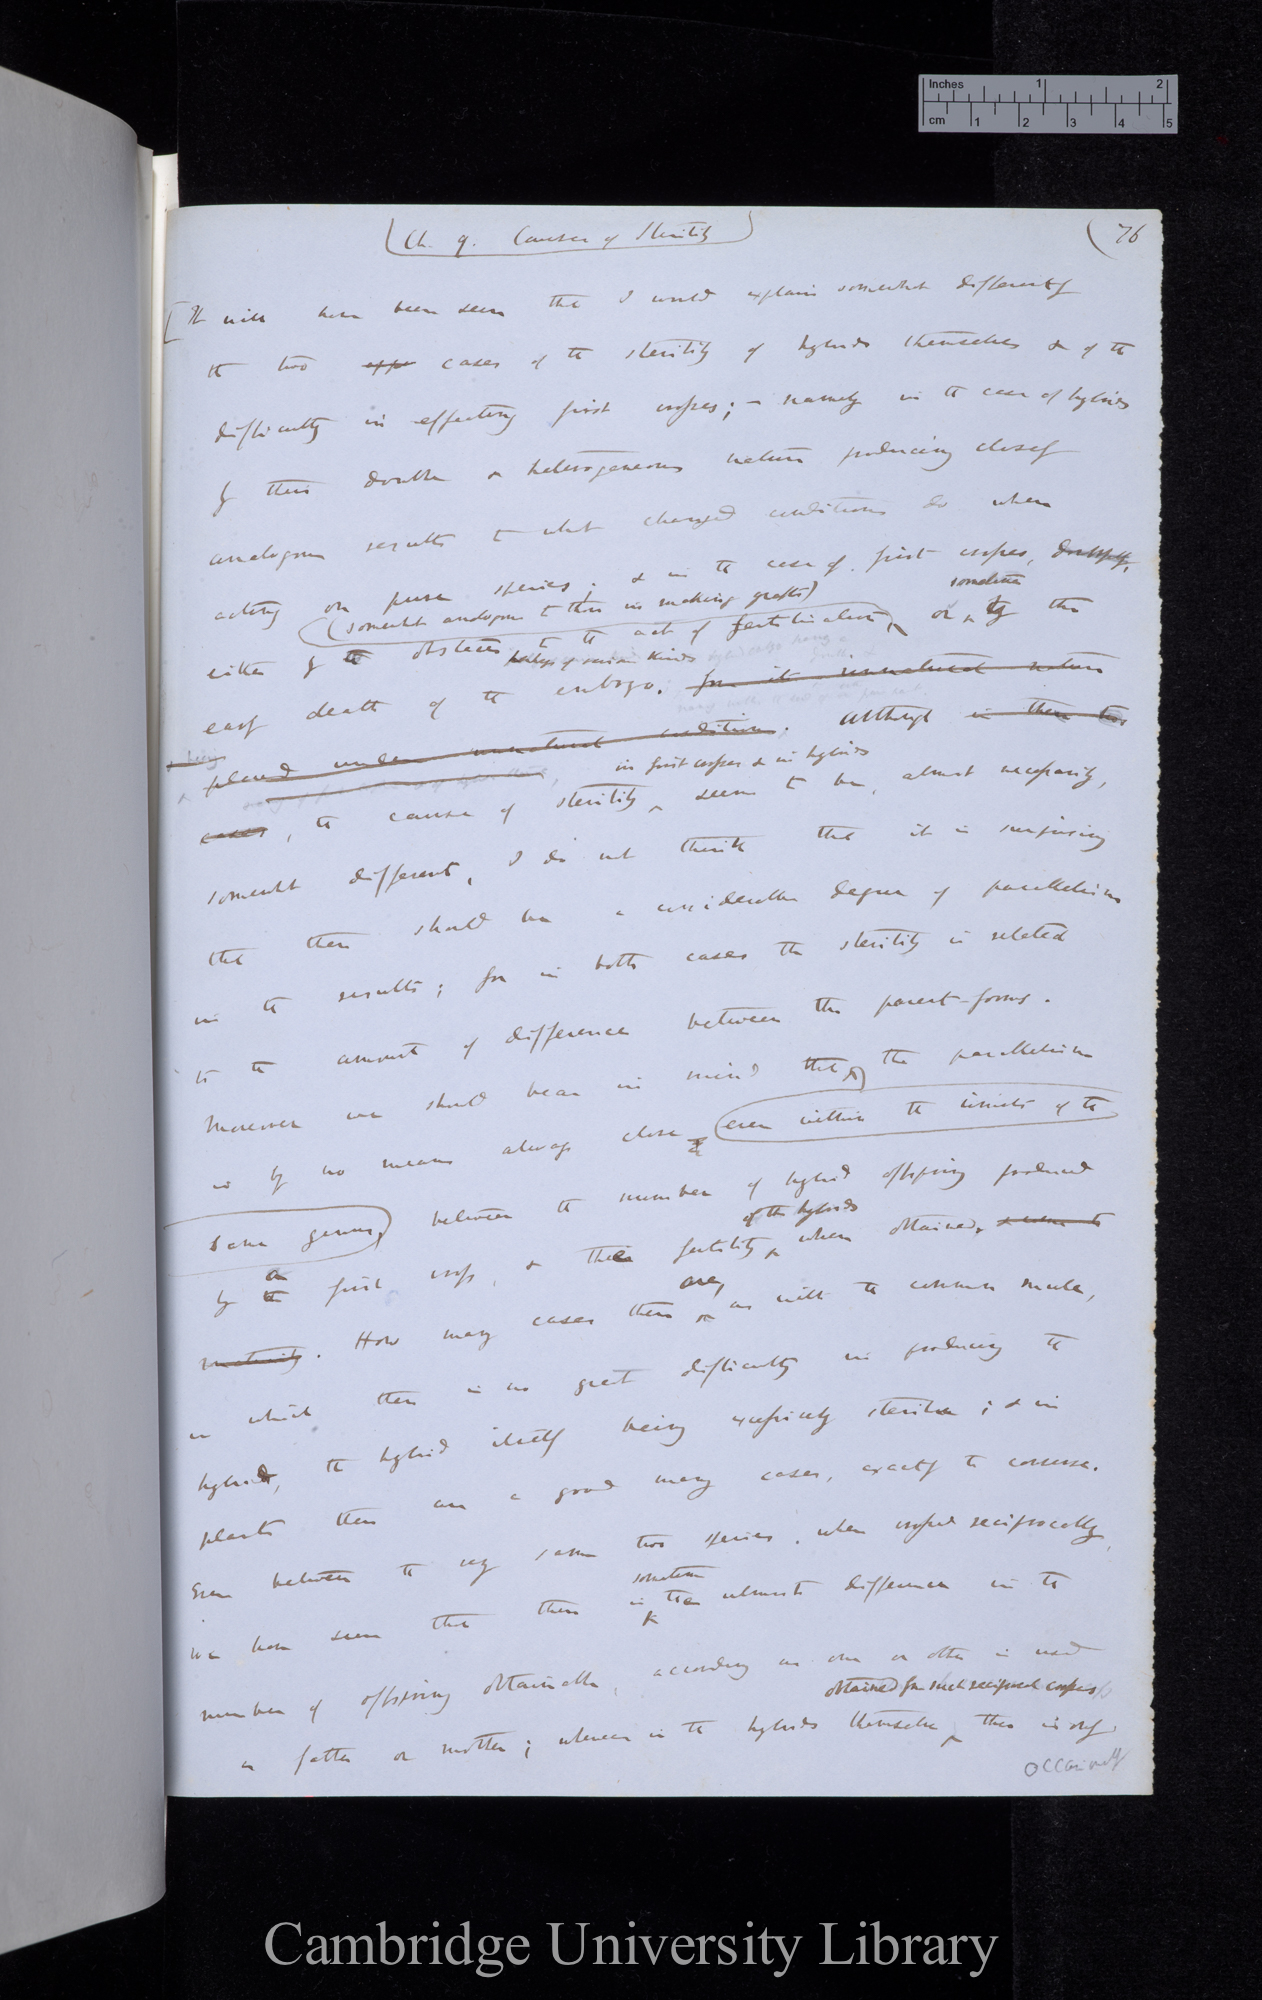 Inches 1 2
cm 1 2 3 4 5
Ch. 9. Causes of Sterility
76
It will have been seen that I would explain somewhat differently
the two cases of the sterility of hybrids themselves & of the
difficulty in effecting first crosses; — namely in the case of hybrids
by their double & heterogeneous nature producing closely
analogous results to what changed conditions do when
acting on pure species; & in the case of first crosses, doubtfully,
(somewhat analogous to those in making grafts) sometimes
either by the obstacles to the act of fertilisation, or by the
perhaps of various kinds
early death of the embryo, from its unnatural nature
being
placed under unnatural conditions. Although in these two
in first crosses & in hybrids
cases, the cause of sterility seem to be, almost necessarily,
somewhat different, I do not think that it is surprising
that there should be a considerable degree of parallelism
in the results; for in both cases the sterility is related
to the amount of difference between the parent-forms.
Moreover we should bear in mind that the parallelism
is by no means always close, even within the limits of the
same genus, between the number of hybrid offspring produced
of the hybrids
by a the first cross, & their fertility when obtained,
are,
maturity. How many cases there as with the common mule,
in which there is no great difficulty in producing the
hybrid, the hybrid itself being excessively sterile; & in
plants there are a good many cases, exactly the converse.
Even between the very same two species, when crossed reciprocally,
sometimes
we have seen that there is the utmost difference in the
number of offspring obtainable, according as one or other is used
obtained from such reciprocal crosses
as father or mother; whereas in the hybrids themselves there is only
occasionally
Cambridge University Library